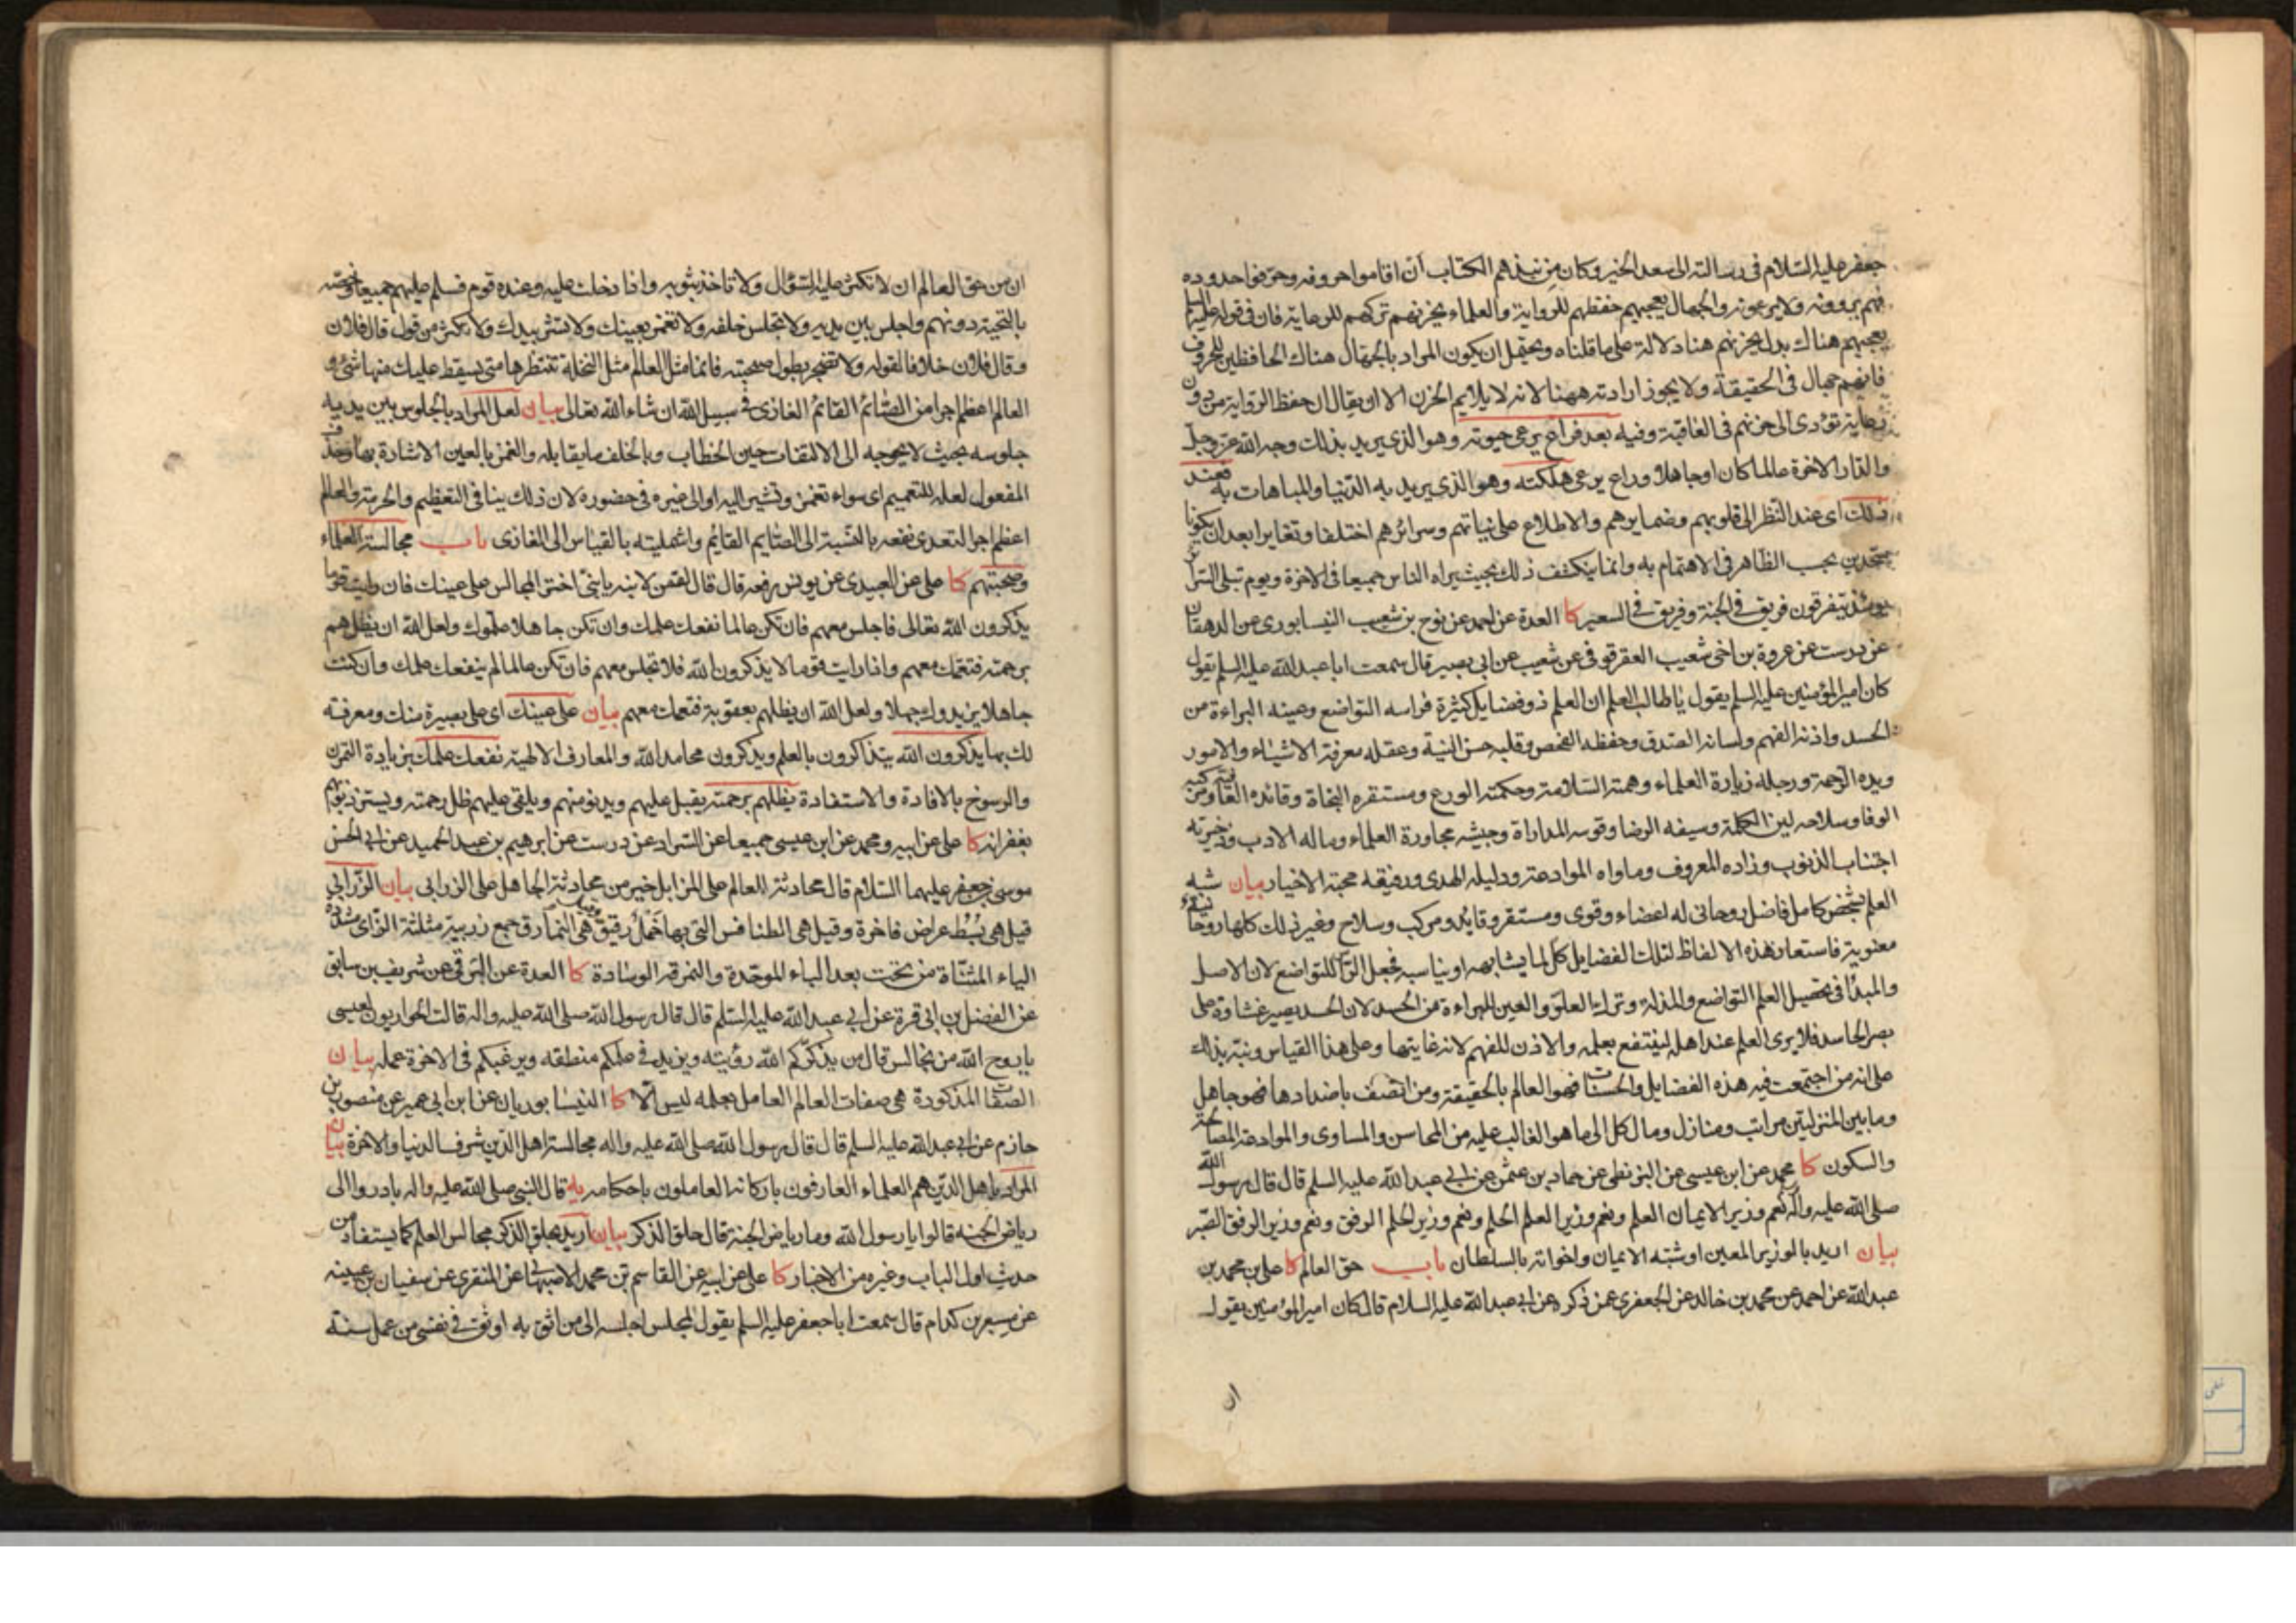 جعفر عليه السلام فى رسالته الى سعد الخير وكان من نبذهم الكتاب ان اقاموا حروفه وحرفوا حدوده
فهم يروونه ولا يرعونه والجهال يعجبهم حفظهم للرواية والعلماء يحزنهم تركهم للرعاية فان فى قوله عليه السلم
يعجبهم هناك بدل يحزنهم هنا دلالة على ما قلناه ويحتمل ان يكون المراد بالجهال هناك الحافظين للحروف
فانهم جهال فى الحقيقة ولا يجوز ارادته ههنا لانه لا يلايم الحزن الا ان يقال ان حفظ الرواية من دون
رعاية تؤدى الى حزنهم فى العاقبة وفيه بعد فراع يرعى حيوته وهو الذى يريد بذلك وجه الله عز وجل
والدار الاخرة عالما كان او جاهلا وراع يرعى هلكته وهو الذى يريد به الدنيا والمباهات به فعند
ذلك اى عند النظر الى قلوبهم وضمايرهم والاطلاع على نياتهم وسرائرهم اختلفا وتغايرا بعد ان يكونا
متحدين بحسب الظاهر فى الاهتمام به وانما ينكشف ذلك بحيث يراه الناس جميعا فى الاخرة ويوم تبلى السرائر
يومئذ يتفرقون فريق فى الجنة وفريق فى السعير كا العدة عن احمد عن نوح بن شعيب النيسابورى عن الدهقان
عن درست عن عروة بن اخى شعيب العقرقوفى عن شعيب عن ابى بصير قال سمعت ابا عبد الله عليه السلم يقول
كان امير المؤمنين عليه السلم يقول يا طالب العلم ان العلم ذو فضايل كثيرة فراسه التواضع وعينه البراءة من
الحسد واذنه الفهم ولسانه الصدق وحفظه الفحص وقلبه حسن النية وعقله معرفة الاشياء والامور
ويده الرحمة ورجله زيارة العلماء وهمته السلامة وحكمته الورع ومستقره النجاة وقائده العافية ومركبه
الوفا وسلاحه لين الكلمة وسيفه الرضا وقوسه المداراة وجيشه محاورة العلماء وماله الادب وذخيرته
اجتناب الذنوب وزاده المعروف وماواه الموادعة ودليله الهدى ورفيقه محبة الاخيار بيان شبه
العلم بشخص كامل فاضل روحانى له اعضاء وقوى ومستقر وقايد ومركب وسلاح وغير ذلك كلها روحانية
معنوية فاستعار هذه الالفاظ لتلك الفضايل كل لما يشابهه او يناسبه فجعل الراس للتواضع لان الاصل
والمبدأ فى تحصيل العلم التواضع والمذلة وترك العلو والعين للبراءة من الحسد لان الحسد يصير غشاوة على
بصر الحاسد فلا يرى العلم عند اهله لينتفع بعلمه والاذن للفهم لانه غايتها وعلى هذا القياس ونبه بذلك
على انه من اجتمعت فيه هذه الفضايل والحسنات فهو العالم بالحقيقة ومن اتصف باضدادها فهو جاهل
وما بين المنزلتين مراتب ومنازل ومال كل الى ما هو الغالب عليه من المحاسن والمساوى والموادعة المصالحة
والسكون كا محمد عن ابن عيسى عن البزنطى عن حماد بن عثمن عن ابى عبد الله عليه السلم قال قال رسول الله
صلى الله عليه وآله نعم وزير الايمان العلم ونعم وزير العلم الحلم ونعم وزير الحلم الرفق ونعم وزير الرفق الصبر
بيان اريد بالوزير المعين او شبه الايمان واخواته بالسلطان باب حق العالم كا على بن محمد بن
عبد الله عن احمد عن محمد بن خالد عن الجعفرى عمن ذكره عن ابى عبد الله عليه السلام قال كان امير المؤمنين يقول
ان
ان من حق العالم ان لا تكثر عليه السؤال ولا تاخذ بثوبه واذا دخلت عليه وعنده قوم فسلم عليهم جميعا وخصه
بالتحية دونهم واجلس بين يديه ولا تجلس خلفه ولا تغمز بعينك ولا تشر بيدك ولا تكثر من قول قال فلان
وقال فلان خلافا لقوله ولا تضجر بطول صحبته فانما مثل العالم مثل النخلة تنتظرها متى يسقط عليك منها شئ و
العالم اعظم اجرا من الصائم القائم الغازى فى سبيل الله ان شاء الله تعالى بيان لعل المراد بالجلوس بين يديه
جلوسه بحيث لا يحوجه الى الالتفات حين الخطاب وبالخلف ما يقابله والغمز بالعين الاشارة بها وحذف
المفعول لعله للتعميم اى سواء تغمز وتشير اليه او الى غيره فى حضوره لان ذلك ينافى التعظيم والحرمة والعالم
اعظم اجرا لتعدى نفعه بالنسبة الى الصايم القايم واعمليته بالقياس الى الغازى باب مجالسة العلماء
وصحبتهم كا على عن العبيدى عن يونس رفعه قال قال لقمن لابنه يا بنى اختر المجالس على عينك فان رايت قوما
يذكرون الله تعالى فاجلس معهم فان تكن عالما نفعك علمك وان تكن جاهلا علموك ولعل الله ان يظلهم
برحمته فتعمك معهم واذا رايت قوما لا يذكرون الله فلا تجلس معهم فان تكن عالما لم ينفعك علمك وان كنت
جاهلا يزيدوك جهلا ولعل الله ان يظلهم بعقوبة فتعمك معهم بيان على عينك اى على بصيرة منك ومعرفة
لك بها يذكرون الله يتذاكرون بالعلم ويذكرون محامد الله والمعارف الالهية نفعك علمك بزيادة التمرن
والرسوخ بالافادة والاستفادة يظلهم برحمته يقبل عليهم ويدنو منهم ويلقى عليهم ظل رحمته ويستر ذنوبهم
بغفرانه كا على عن ابيه ومحمد عن ابن عيسى جميعا عن السراد عن درست عن ابرهيم بن عبد الحميد عن ابى الحسن
موسى بن جعفر عليهما السلام قال محادثة العالم على المزابل خير من محادثة الجاهل على الزرابى بيان الزرابى
قيل هى بسط عراض فاخرة وقيل هى الطنافس التى بها خمل رقيق وقيل هى النمارق جمع زربية مثلثة الزاى مشددة
الياء المثناة من تحت بعد الباء الموحدة والنمرقة الوسادة كا العدة عن البرقى عن شريف بن سابق
عن الفضل بن ابى قرة عن ابى عبد الله عليه السلم قال قال رسول الله صلى الله عليه واله قالت الحواريون لعيسى
يا روح الله من نجالس قال من يذكركم الله رؤيته ويزيد فى علمكم منطقه ويرغبكم فى الاخرة عمله بيان
الصفات المذكورة هى صفات العالم العامل بعلمه ليس الا كا النيسابوريان عن ابن ابى عمير عن منصور بن
حازم عن ابى عبد الله عليه السلم قال قال رسول الله صلى الله عليه واله مجالسة اهل الدين شرف الدنيا والاخرة بيان
المراد باهل الدين هم العلماء العارفون باركانه العاملون باحكامه يه قال النبى صلى الله عليه واله بادروا الى
رياض الجنة قالوا يا رسول الله وما رياض الجنة قال حلق الذكر بيان اريد بحلق الذكر مجالس العلم كما يستفاد من
حديث اول الباب وغيره من الاخبار كا على عن ابيه عن القاسم بن محمد الاصبهانى عن المنقرى عن سفيان بن عيينه
عن مسعر بن كدام قال سمعت ابا جعفر عليه السلم يقول لمجلس اجلسه الى من اثق به اوثق فى نفسى من عمل سنة